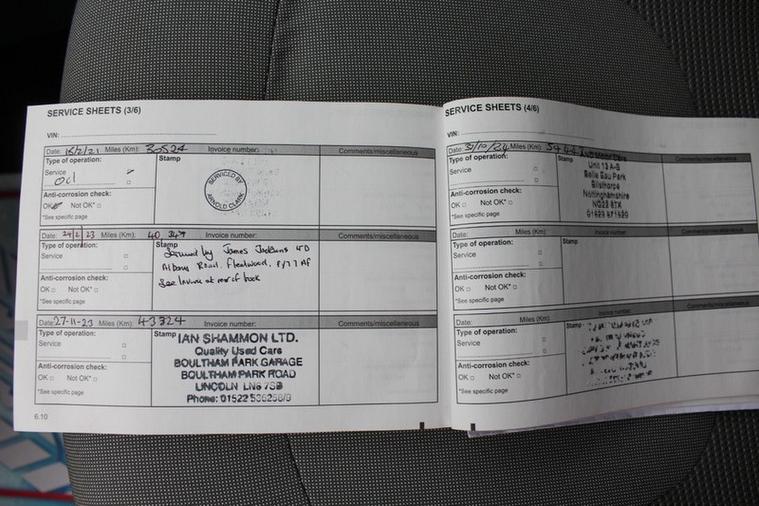 SERVICE SHEETS (3/6)
VIN:
Date: 15/2/21 Miles (Km): 30524 Invoice number: Comments/miscellaneous
Type of operation: Stamp
Service
Ocl
SERVICED BY
ARNOLD CLARK
Anti-corrosion check:
OK Not OK*
*See specific page
Date: 24/2/23 Miles (Km): 40 347 Invoice number: Comments/miscellaneous
Type of operation: Stamp
Service
by James Jacksons
Albany Road, Fleetwood,
See Invoice at rear of book
Anti-corrosion check:
OK Not OK*
*See specific page
Date: 27-11-23 Miles (Km): 43824 Invoice number: Comments/miscellaneous
Type of operation: Stamp
Service
IAN SHAMMON LTD.
Quality Used Cars
BOULTHAM PARK GARAGE
BOULTHAM PARK ROAD
LINCOLN LN6 7SB
Phone: 01522
Anti-corrosion check:
OK Not OK*
*See specific page
6.10
SERVICE SHEETS (4/6)
VIN:
Date: Miles (Km): Comments/miscellaneous
Type of operation: Stamp
Service
Unit 13 A-B
Belle Eau Park
Bilsthorpe
Nottinghamshire
NG22 8TX
Anti-corrosion check:
OK Not OK*
*See specific page
Date: Miles (Km): Invoice number: Comments/miscellaneous
Type of operation: Stamp
Service
Anti-corrosion check:
OK Not OK*
*See specific page
Date: Miles (Km): Invoice number: Comments/miscellaneous
Type of operation: Stamp
Service
Anti-corrosion check:
OK Not OK*
*See specific page